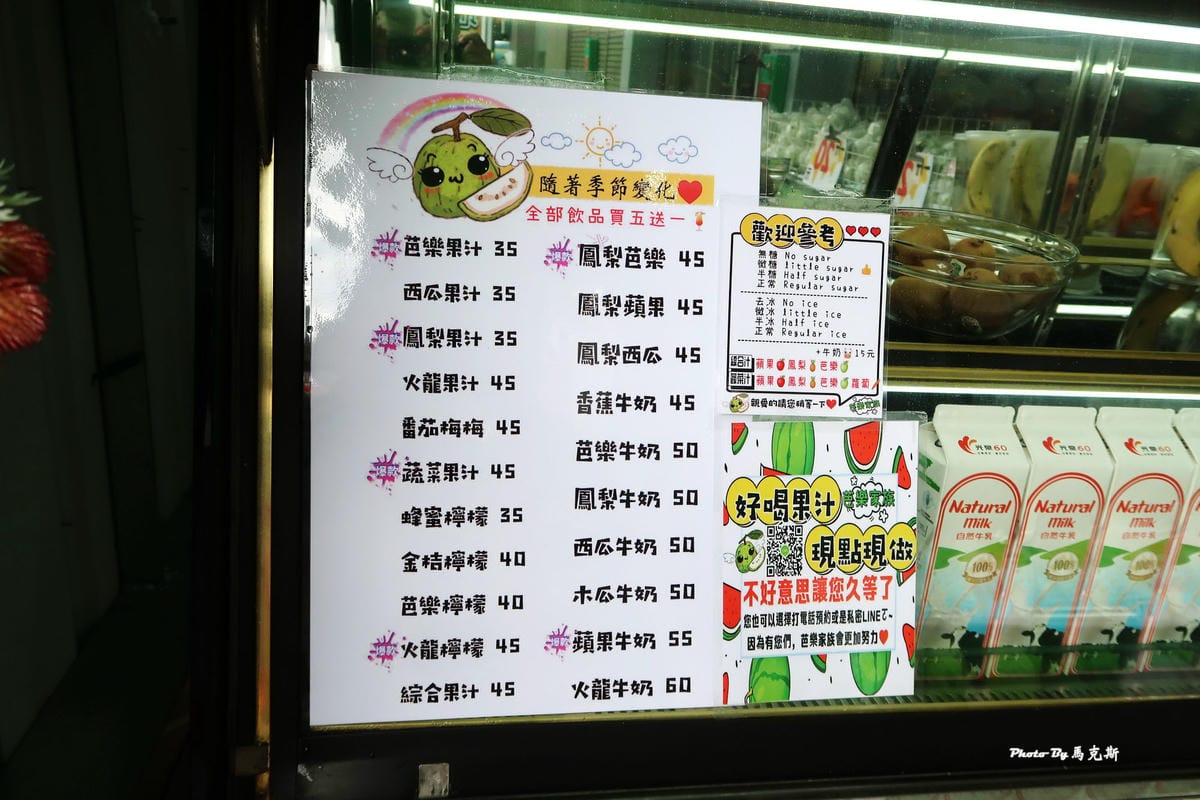 隨著季節變化
全部飲品買五送一
爆款 芭樂果汁 35
西瓜果汁 35
爆款 鳳梨果汁 35
火龍果汁 45
番茄梅梅 45
爆款 蔬菜果汁 45
蜂蜜檸檬 35
金桔檸檬 40
芭樂檸檬 40
爆款 火龍檸檬 45
綜合果汁 45
爆款 鳳梨芭樂 45
鳳梨蘋果 45
鳳梨西瓜 45
香蕉牛奶 45
芭樂牛奶 50
鳳梨牛奶 50
西瓜牛奶 50
木瓜牛奶 50
爆款 蘋果牛奶 55
火龍牛奶 60
歡迎參考
無糖 No sugar
微糖 little sugar
半糖 Half sugar
正常 Regular sugar
去冰 No ice
微冰 little ice
半冰 Half ice
正常 Regular ice
+牛奶 15元
綜合汁 蘋果 鳳梨 芭樂
蘋果 鳳梨 芭樂 蘿蔔
親愛的請您稍等一下
芭樂家族
好喝果汁
芭樂家族
現點現做
不好意思讓您久等了
您也可以選擇打電話預約或是私密LINE乙~
因為有您們，芭樂家族會更加努力
光泉 60
Natural
milk
自然牛乳
100%
光泉 60
Natural
milk
自然牛乳
100%
光泉 60
Natural
milk
自然牛乳
100%
20
Photo By 馬克斯